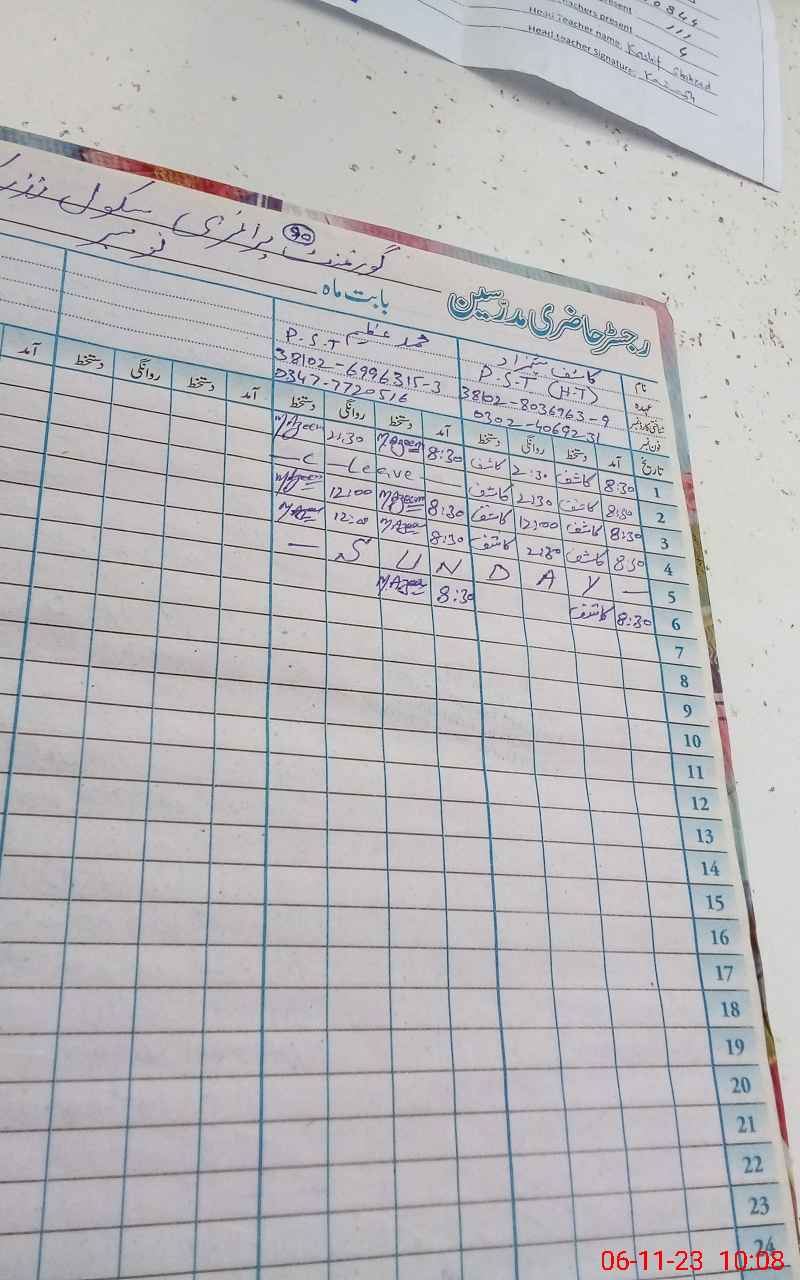 0344
Teachers present
Head Teacher name: Kashif Shahzad
Head teacher signature: Kashif
گورنمنٹ پرائمری سکول
90
نومبر
رجسٹر حاضری مدرسین بابت ماہ
نام کاشف شہزاد محمد عظیم
عہدہ P.S.T (H.T) P.S.T
شناختی کارڈ نمبر 38102-8036963-9 38102-6996315-3
فون نمبر 0302-4069231 0347-7720516
تاریخ آمد دستخط روانگی دستخط آمد دستخط روانگی دستخط آمد دستخط روانگی دستخط آمد
1 8:30 کاشف 2:30 کاشف 8:30 M Azeem 2:30 M Azeem
2 8:30 کاشف 2:30 کاشف — C — Leave —
3 8:30 کاشف 12:00 کاشف 8:30 M Azeem 12:00 M Azeem
4 8:30 کاشف 2:30 کاشف 8:30 M Azeem 12:00 M Azeem
5 — S U N D A Y —
6 8:30 کاشف 8:30 M Azeem
7
8
9
10
11
12
13
14
15
16
17
18
19
20
21
22
23
24
06-11-23 10:08